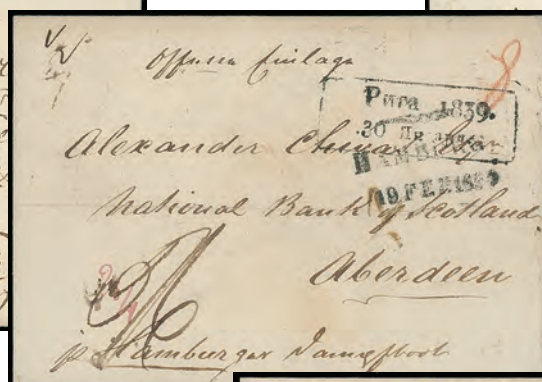 Offene Einlage
Рига 1839.
30 Января
HAMBURG
19 FEB 1839
Alexander Esqr
National Bank of Scotland
Aberdeen
pr Hamburger Dampfboot